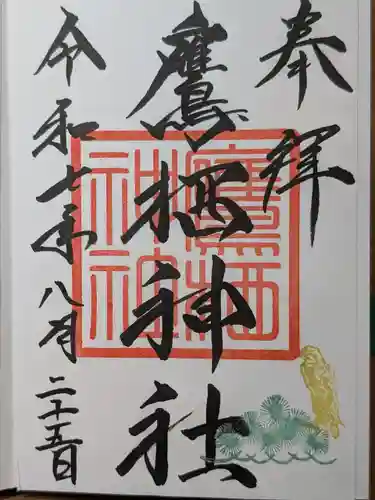 奉拝
鷹栖神社
鷹栖神社
令和七年
八月
二十五日